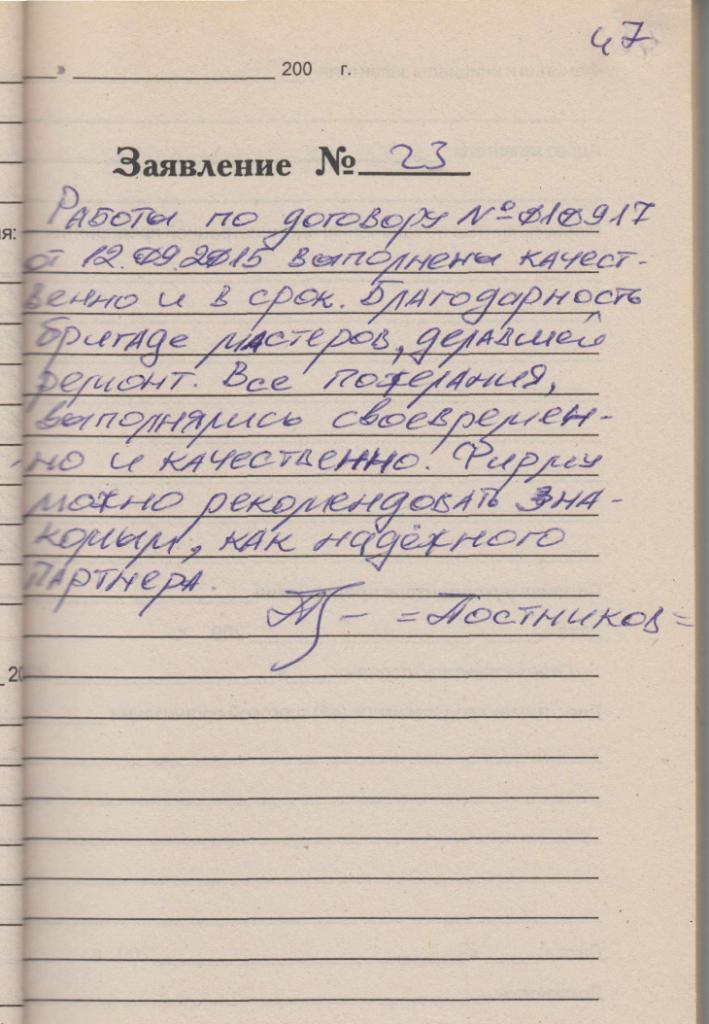 47
" 200 г.
Заявление № 23
Работы по договору № 010917
от 12.09.2015 выполнены качест-
венно и в срок. Благодарность
бригаде мастеров, делавшей
ремонт. Все пожелания,
выполнялись своевремен-
но и качественно. Фирму
можно рекомендовать зна-
комым, как надёжного
партнера.
= Постников =
20